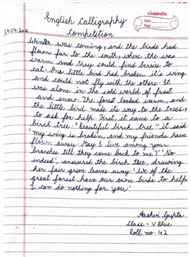 classmate
English Calligraphy
Competition
Winter was coming, and the birds had
flown far to the south, where the air
was warm and they could find berries to
eat. One little bird had broken it's wing
and could not fly with the others. It
was alone in the cold world of frost
and snow. The forest looked warm, and
the little bird made its way to the trees
to ask for help. First it came to a
birch tree. "Beautiful birch tree" it said
"my wing is broken, and my friends have
flown away. May I live among your
branches till they come back to me?" "No
indeed", answered the birch tree, drawing
her fair green leaves away. "We of the
great forest have our own birds to help
I can do nothing for you"
Aashvi Gupta
Class - V Blue
Roll no. 42